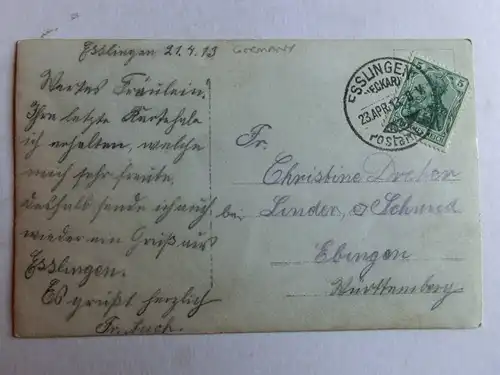 Esslingen 21.4.13 GERMANY
Wertes Fräulein.
Ihre letzte Karte habe
ich erhalten, welche
mich sehr freute,
deshalb sende ich auch
wieder ein Gruß aus
Esslingen.
Es grüßt herzlich
Fr.
Fr.
Christine
bei Linder, Schmied
Ebingen
Württemberg
ESSLINGEN
(NECKAR)
23.APR.13. 8-
5